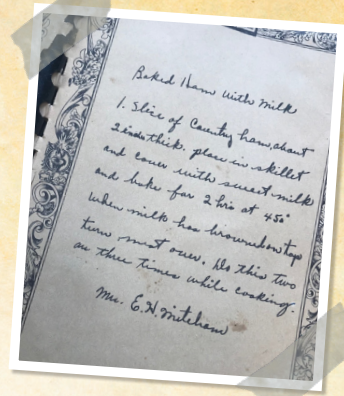 Baked Ham with Milk
1. Slice of Country ham, about
2 inch thick. place in skillet
and cover with sweet milk
and bake for 2 hrs at 450°
when milk has browned on top
turn meat over. Do this two
or three times while cooking.
Mrs. E. H. Mitcham